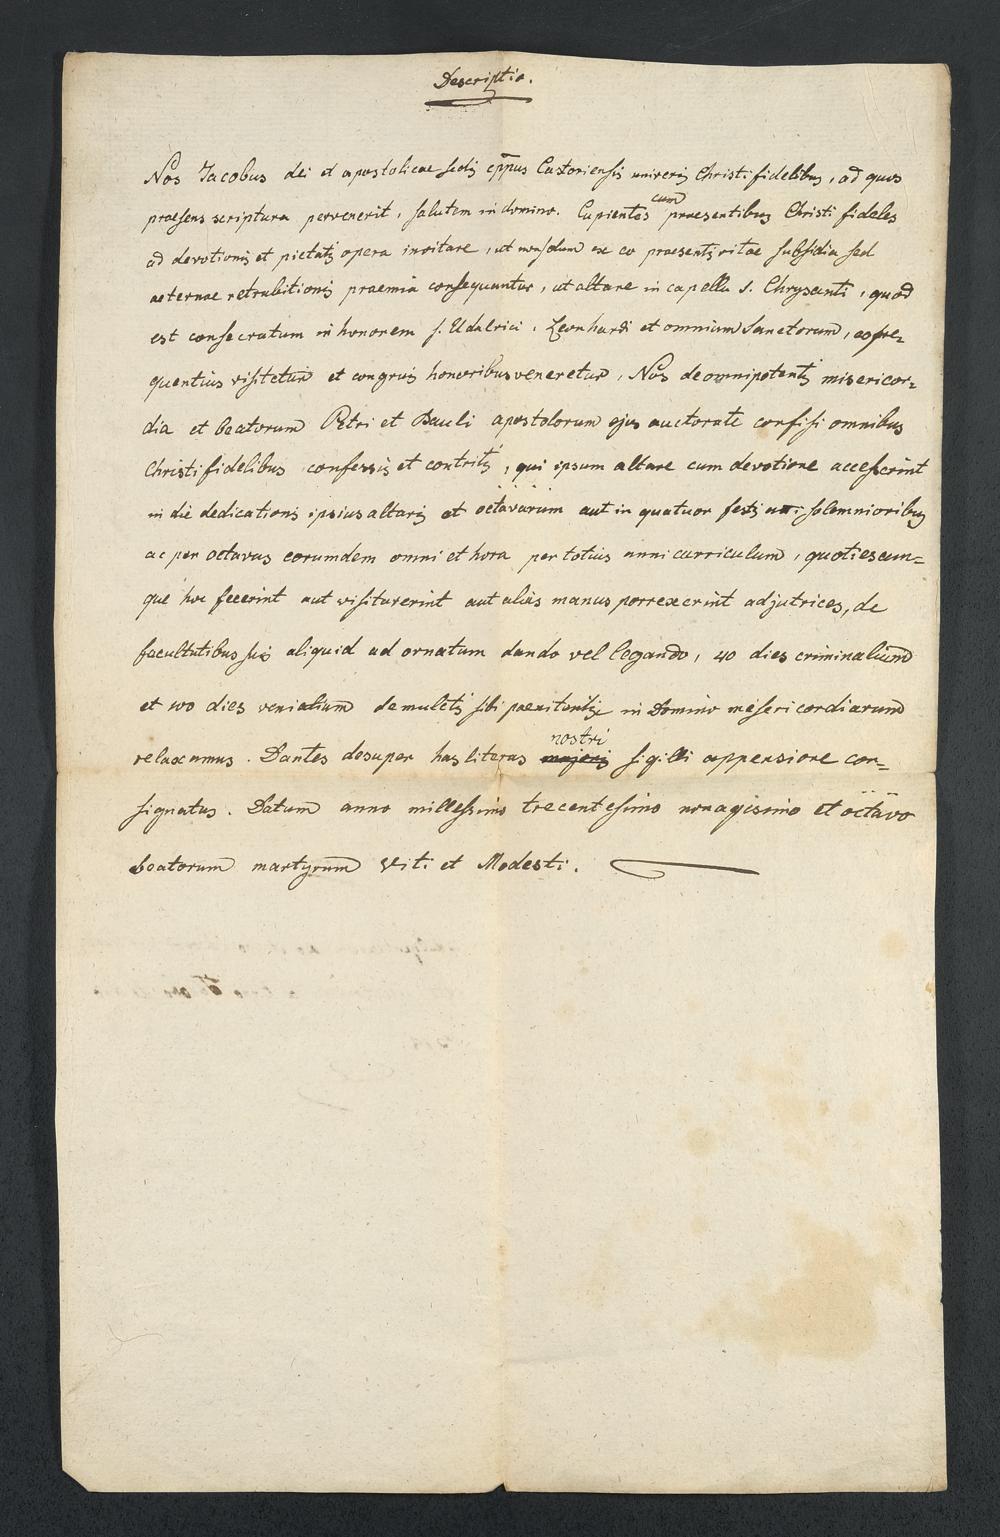 Descriptio.
Nos Jacobus dei et apostolicae sedis eppus Castoriensis universis Christi fidelibus, ad quos
praesens scriptura pervenerit, salutem in domino. Cupientes cum praesentibus Christi fideles
ad devotionis et pietatis opera invitare, ut non solum ex eo praesentis vitae subsidia sed
aeternae retrubitionis praemia consequantur, ut altare in capella S. Chrysanti, quod
est consecratum in honorem s. Udalrici, Leonhardi et omnium Sanctorum, eo fre=
quentius visitetur et congruis honoribus veneretur, Nos de omnipotentis misericor=
dia et beatorum Petri et Pauli apostolorum ejus auctorate confisi omnibus
Christi fidelibus confessis et contritis, qui ipsum altare cum devotione accesserint
in die dedicationis ipsius altaris et octavarum aut in quatuor festis solemnioribus
ac per octavas eorumdem omni et hora per totius anni curriculum, quotiescun=
que hoc fecerint aut visitaverint aut aliis manus porrexerint adjutrices, de
facultatibus suis aliquid ad ornatum dando vel legando, 40 dies criminalium
et 100 dies venialium de mulctis sibi paenitentiae in Domino misericordiarum
relaxamus. Dantes desuper has literas majoris nostri sigilli appensione con=
signatas. Datum anno millessimo trecentesimo nonagisimo et octavo
beatorum martyrum Viti et Modesti.